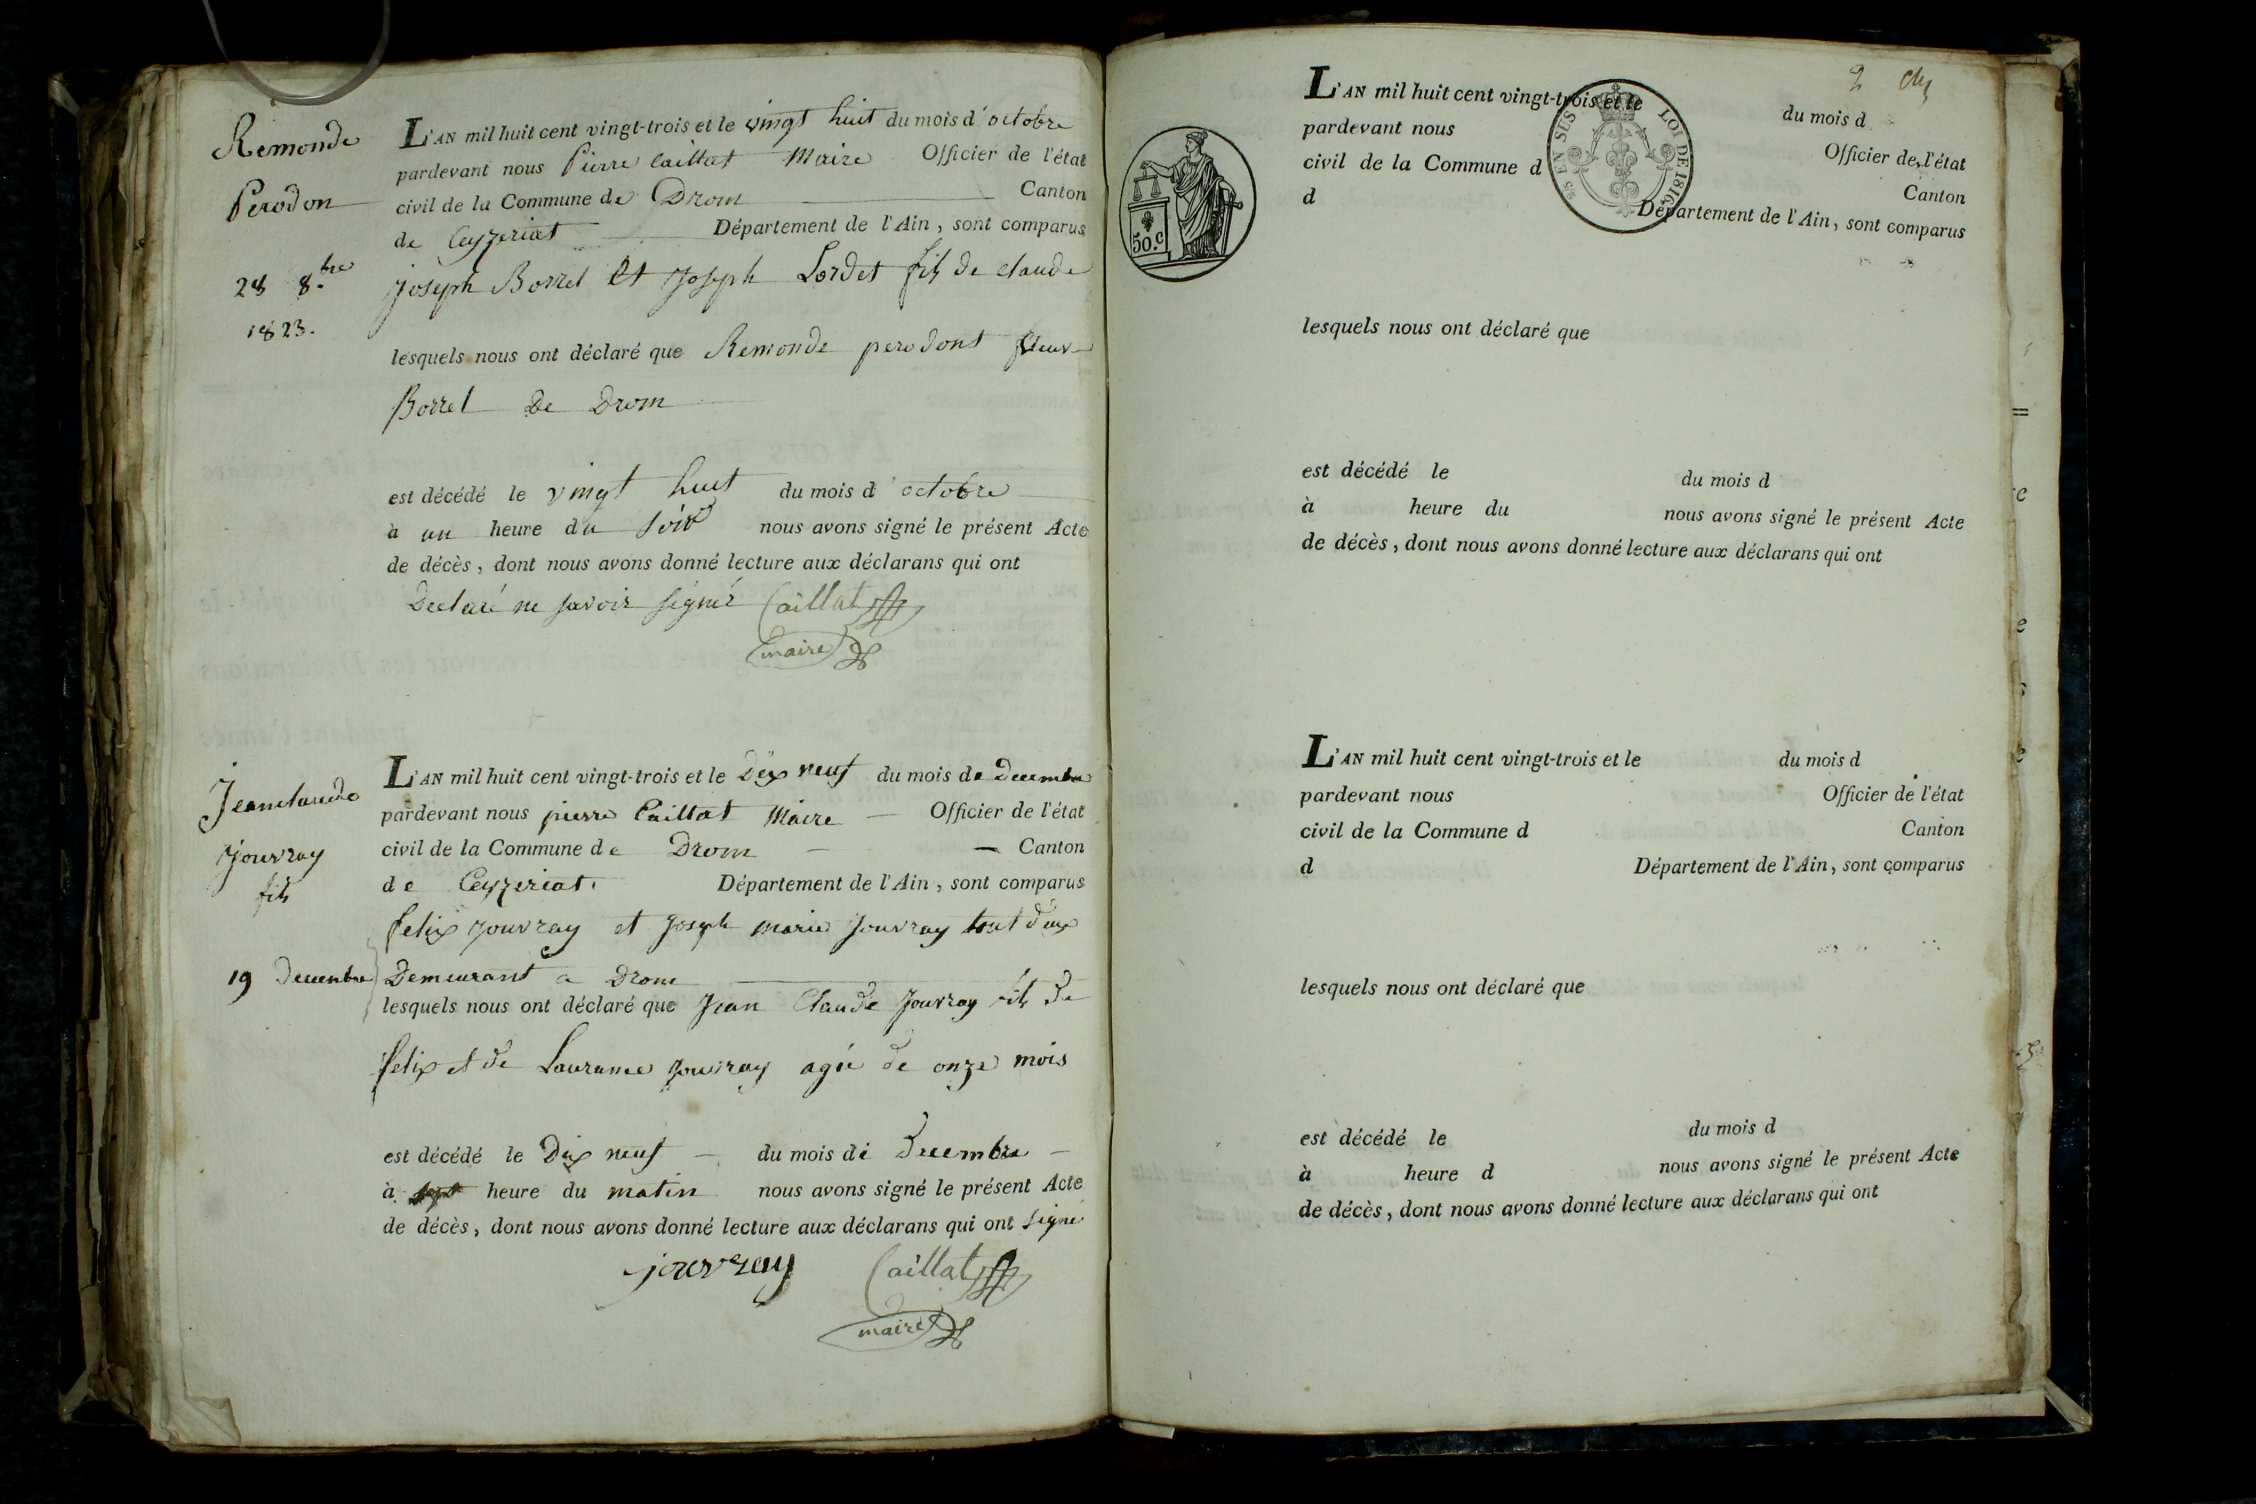 Remonde
Perodon
28 8.bre
1823.
L'AN mil huit cent vingt-trois et le vingt huit du mois d'octobre
pardevant nous Pierre Caillat Maire Officier de l'état
civil de la Commune de Drom Canton
de Ceyzeriat Département de l'Ain, sont comparus
joseph Borrel Et Joseph Lordet fils de claude
lesquels nous ont déclaré que Remonde perodont
Borrel De Drom
est décédé le vingt huit du mois d'octobre
à un heure du Soir nous avons signé le présent Acte
de décès, dont nous avons donné lecture aux déclarans qui ont
Declaré ne savoir signer Caillat
maire
Jean claude
Jouvray
fils
19 Decembre
L'AN mil huit cent vingt-trois et le Dix neuf du mois de Decembre
pardevant nous pierre Caillat Maire Officier de l'état
civil de la Commune de Drom Canton
de Ceyzeriat. Département de l'Ain, sont comparus
felix Jouvray et Joseph marie Jouvray tout deux
Demeurant a Drom
lesquels nous ont déclaré que Jean Claude Jouvray fils de
felix et de Laurance Jouvray agée de onze mois
est décédé le Dix neuf du mois de Decembre
à sept heure du matin nous avons signé le présent Acte
de décès, dont nous avons donné lecture aux déclarans qui ont signé
jouvray Caillat
maire
2
50.c
EN SUS LOI DE 1816
L'AN mil huit cent vingt-trois et le du mois d
pardevant nous Officier de l'état
civil de la Commune d Canton
d Département de l'Ain, sont comparus
lesquels nous ont déclaré que
est décédé le du mois d
à heure du nous avons signé le présent Acte
de décès, dont nous avons donné lecture aux déclarans qui ont
L'AN mil huit cent vingt-trois et le du mois d
pardevant nous Officier de l'état
civil de la Commune d Canton
d Département de l'Ain, sont comparus
lesquels nous ont déclaré que
est décédé le du mois d
à heure d nous avons signé le présent Acte
de décès, dont nous avons donné lecture aux déclarans qui ont